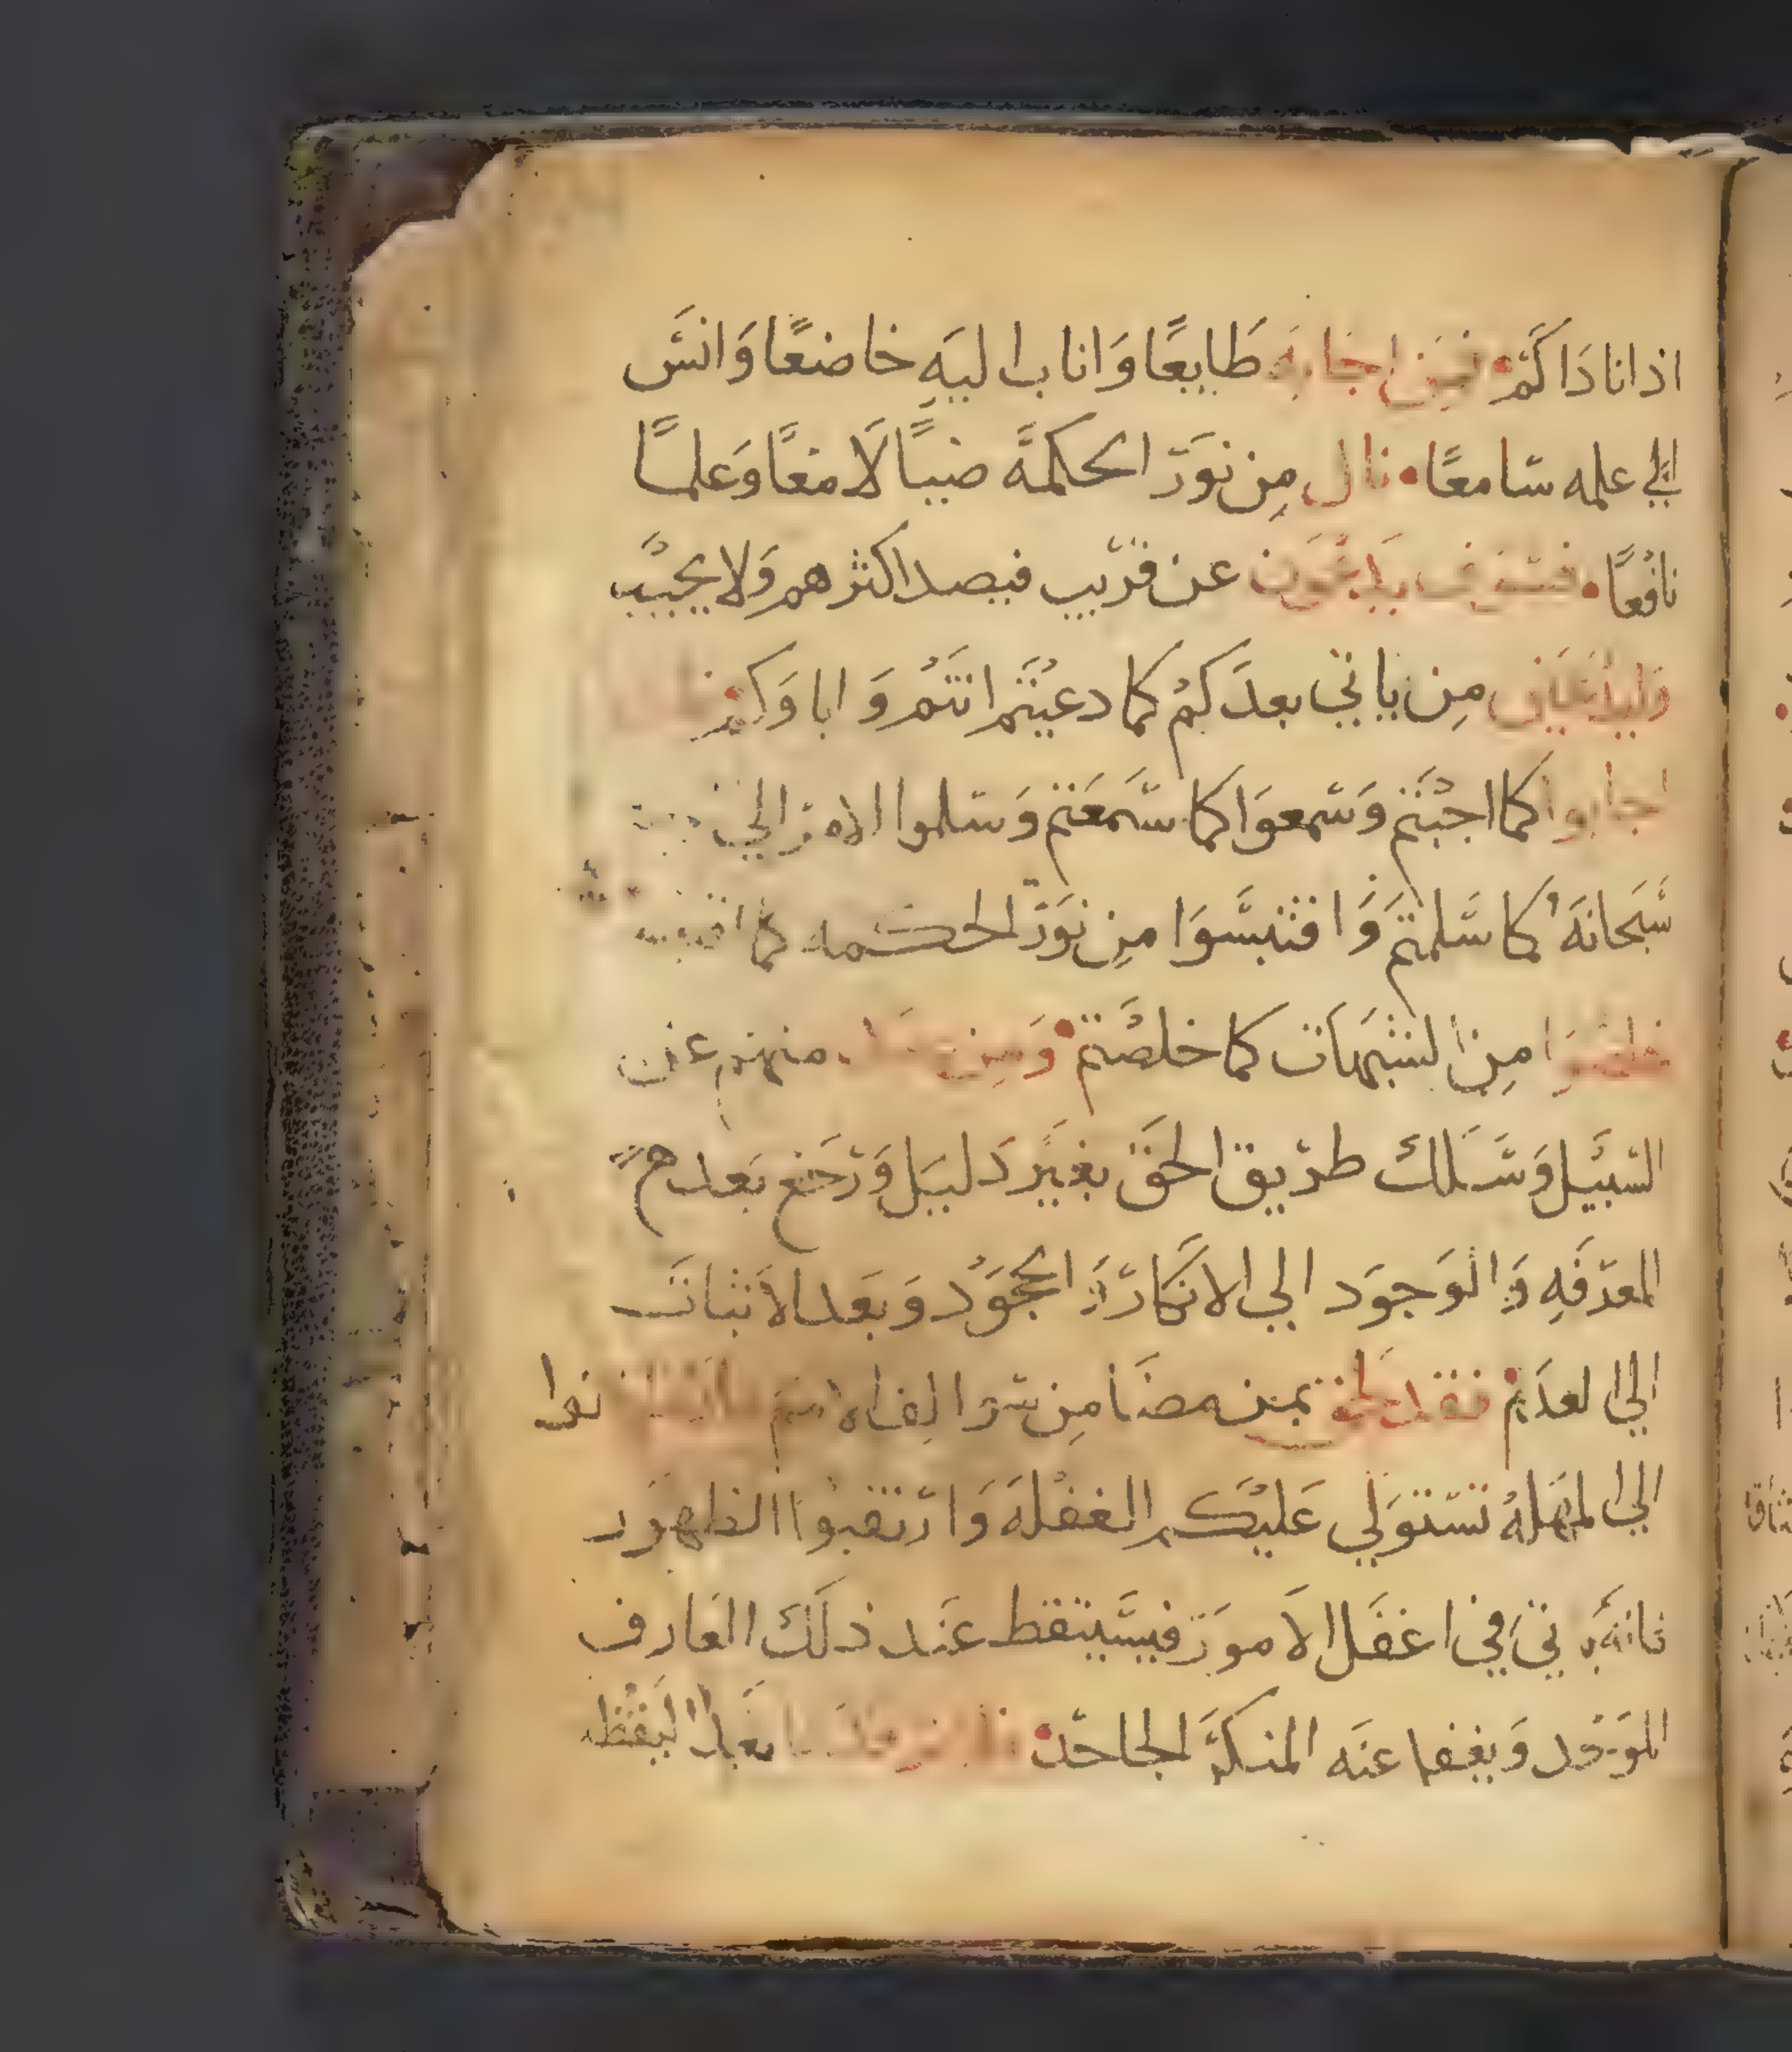 اذا ناداكم • فمن اجابه طايعًا وَاناب اليهِ خاضعًا وَانسَ
الي علمه سَامعًا • نال مِن نوَر الحكمَه ضيبًا لَامعًا وَعلمًا
نافعًا • فسَوف يدعَون عن قريب فيصد اكثرهم وَلا يجيب
مِن ياتي بعدَكم كما دعيتم انتم وَاباوَكم
اجابوا كما اجبتم وَسَمعوَا كما سَمعَتم وَسَلموا الامر الي
سَبحانهَ كما سَلمتم وَاقتبسَوَا مِن نوَر الحكمه كما
مِن الشبهَات كما خلصَتم • وَمِن منهم عن
السَبيَل وَسَلك طريق الحقَ بغيَر دَليَل وَرجَع بَعد
المعرَفَهِ وَالوَجوَد الي الانكار وَالجحوَد وَبعَد الاثبات
الي العدَم • فقد لحق بمن مضَا مِن
الي المهَله تستوَلي عَليكم الغفله وَارتقبوا الظهوَر
ياتيَ في اغفَل الاموَر فيسَيتقظ عنَد ذلَك العَارف
الموَحد وَيغفا عنَه المنكرَ الجاحَد •